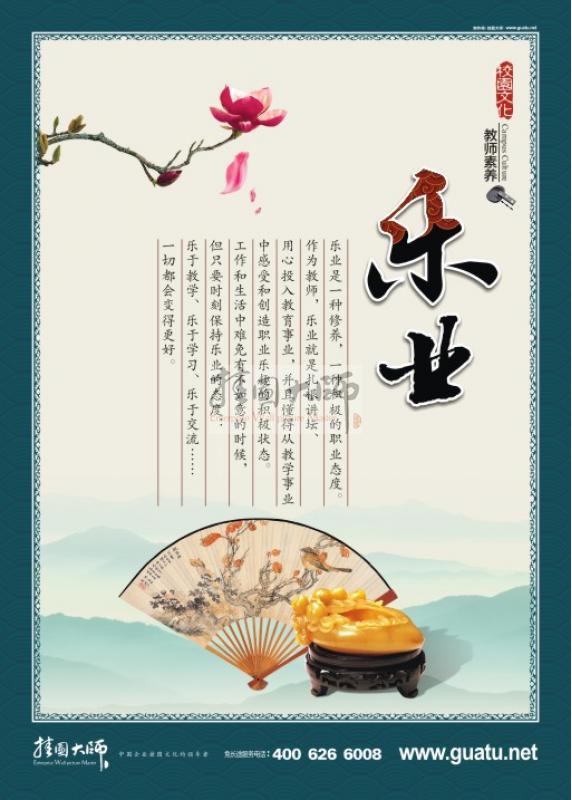 www.guatu.net
校园文化
Campus Culture
教师素养
乐业
乐业是一种修养，一种积极的职业态度。
作为教师，乐业就是扎根讲坛、
用心投入教育事业，并且懂得从教学事业
中感受和创造职业乐趣的积极状态。
工作和生活中难免有不如意的时候，
但只要时刻保持乐业的态度：
乐于教学、乐于学习、乐于交流……
一切都会变得更好。
挂圖大師
Enterprise Wallpicture Master
挂圖大師
Enterprise Wallpicture Master
免长途服务电话：400 626 6008
www.guatu.net